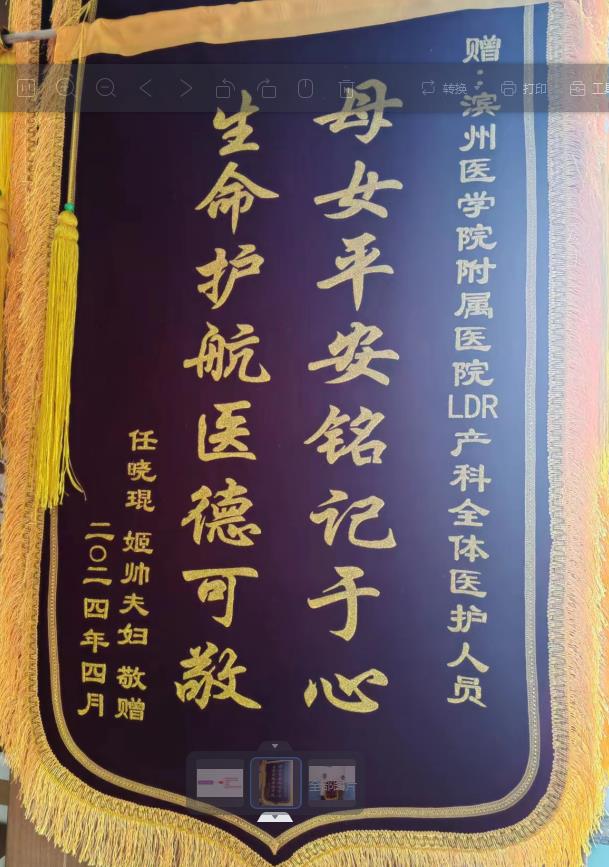 赠：滨州医学院附属医院LDR产科全体医护人员
母女平安铭记于心
生命护航医德可敬
任晓琨 姬帅夫妇 敬赠
二〇二四年四月
转换
打印
工具
全部图片